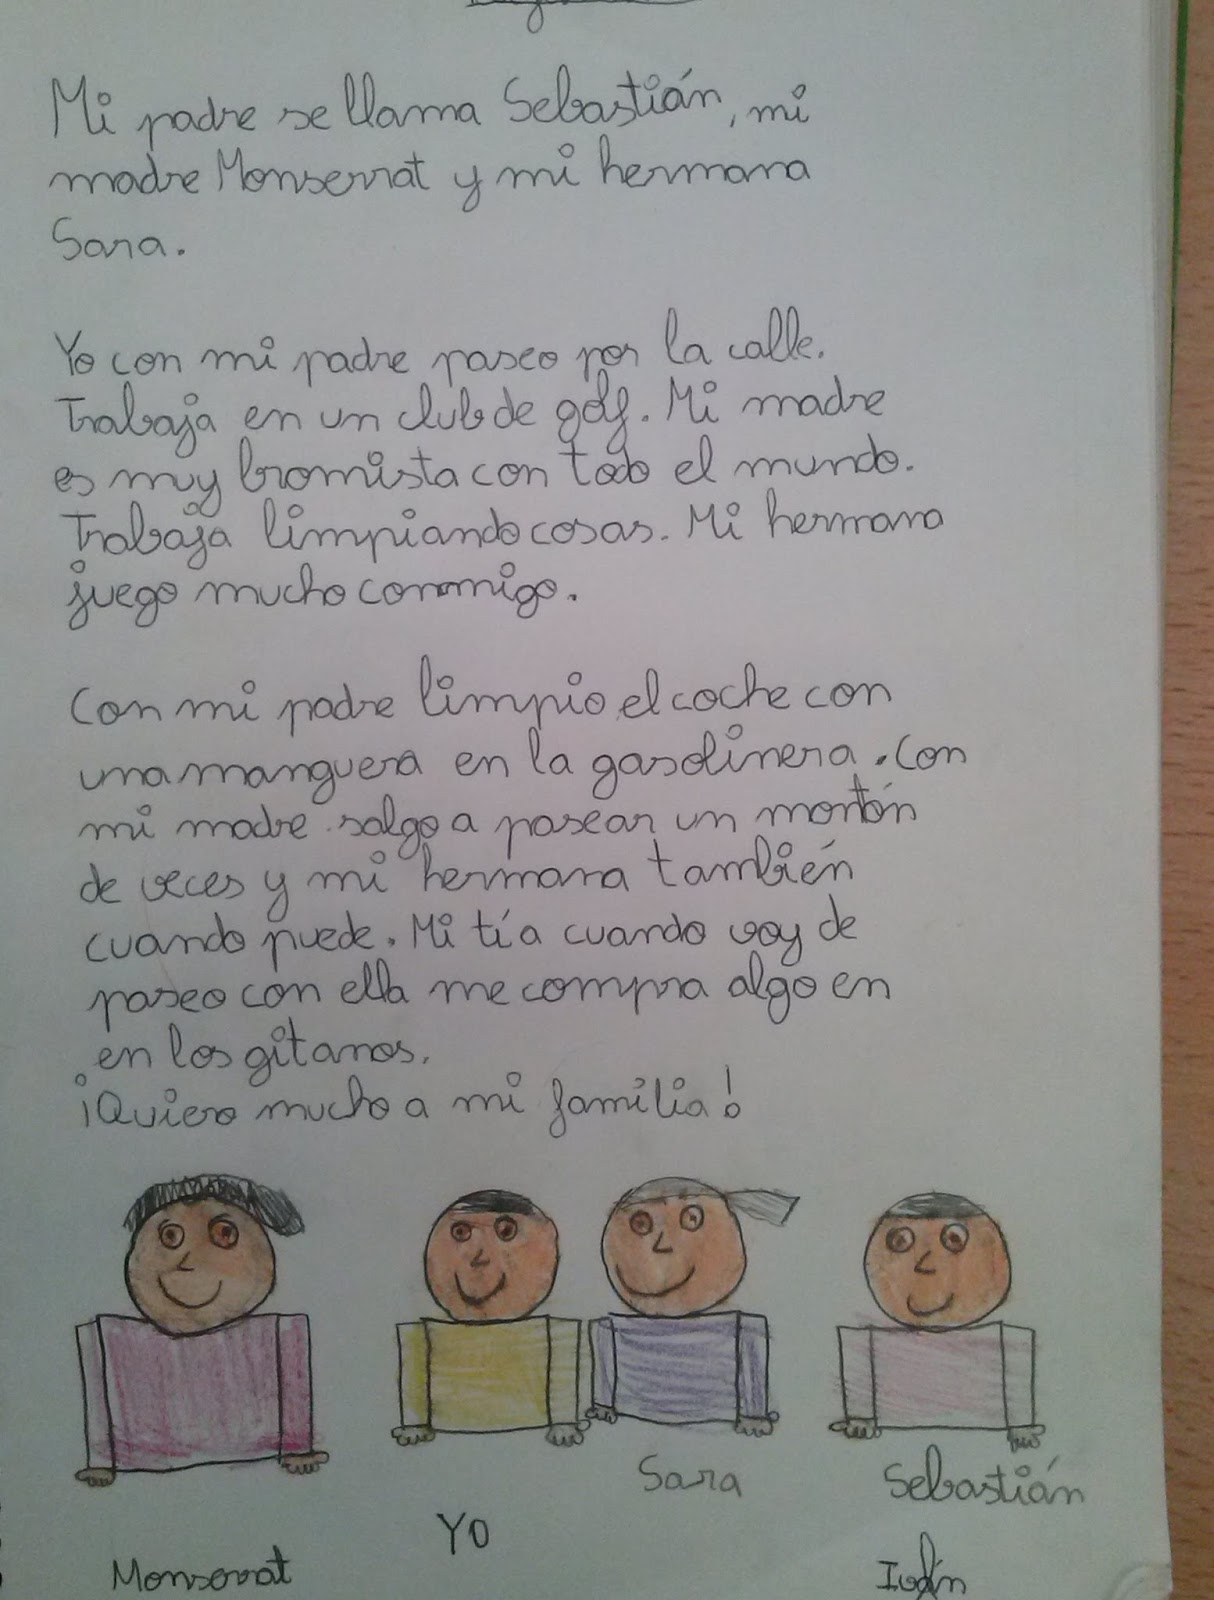 Mi padre se llama Sebastián, mi
madre Monserrat y mi hermana
Sara.
Yo con mi padre paseo por la calle.
Trabaja en un club de golf. Mi madre
es muy bromista con todo el mundo.
Trabaja limpiando cosas. Mi hermana
juego mucho conmigo.
Con mi padre limpio el coche con
una manguera en la gasolinera. Con
mi madre salgo a pasear un montón
de veces y mi hermana también
cuando puede. Mi tía cuando voy de
paseo con ella me compra algo en
en los gitanos.
¡Quiero mucho a mi familia!
Sara Sebastián
Yo
Monserrat Iván